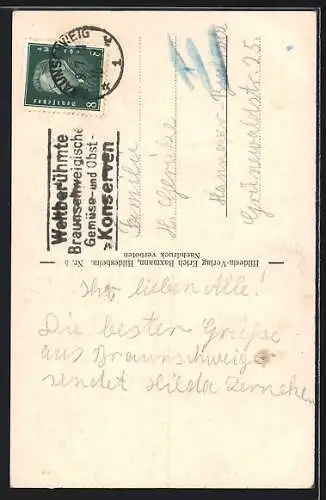 BRAUNSCHWEIG
1
Deutsches Reich
8
8
Weltberühmte
Braunschweigische
Gemüse- und Obst-
Konserven
Familie
H. Gericke
Hannover
Grünewaldstr. 25.
Hildesia-Verlag Erich Baxmann, Hildesheim. Nr.
Nachdruck verboten
Ihr lieben Alle!
Die besten Grüße
aus Braunschweig
sendet Hilda